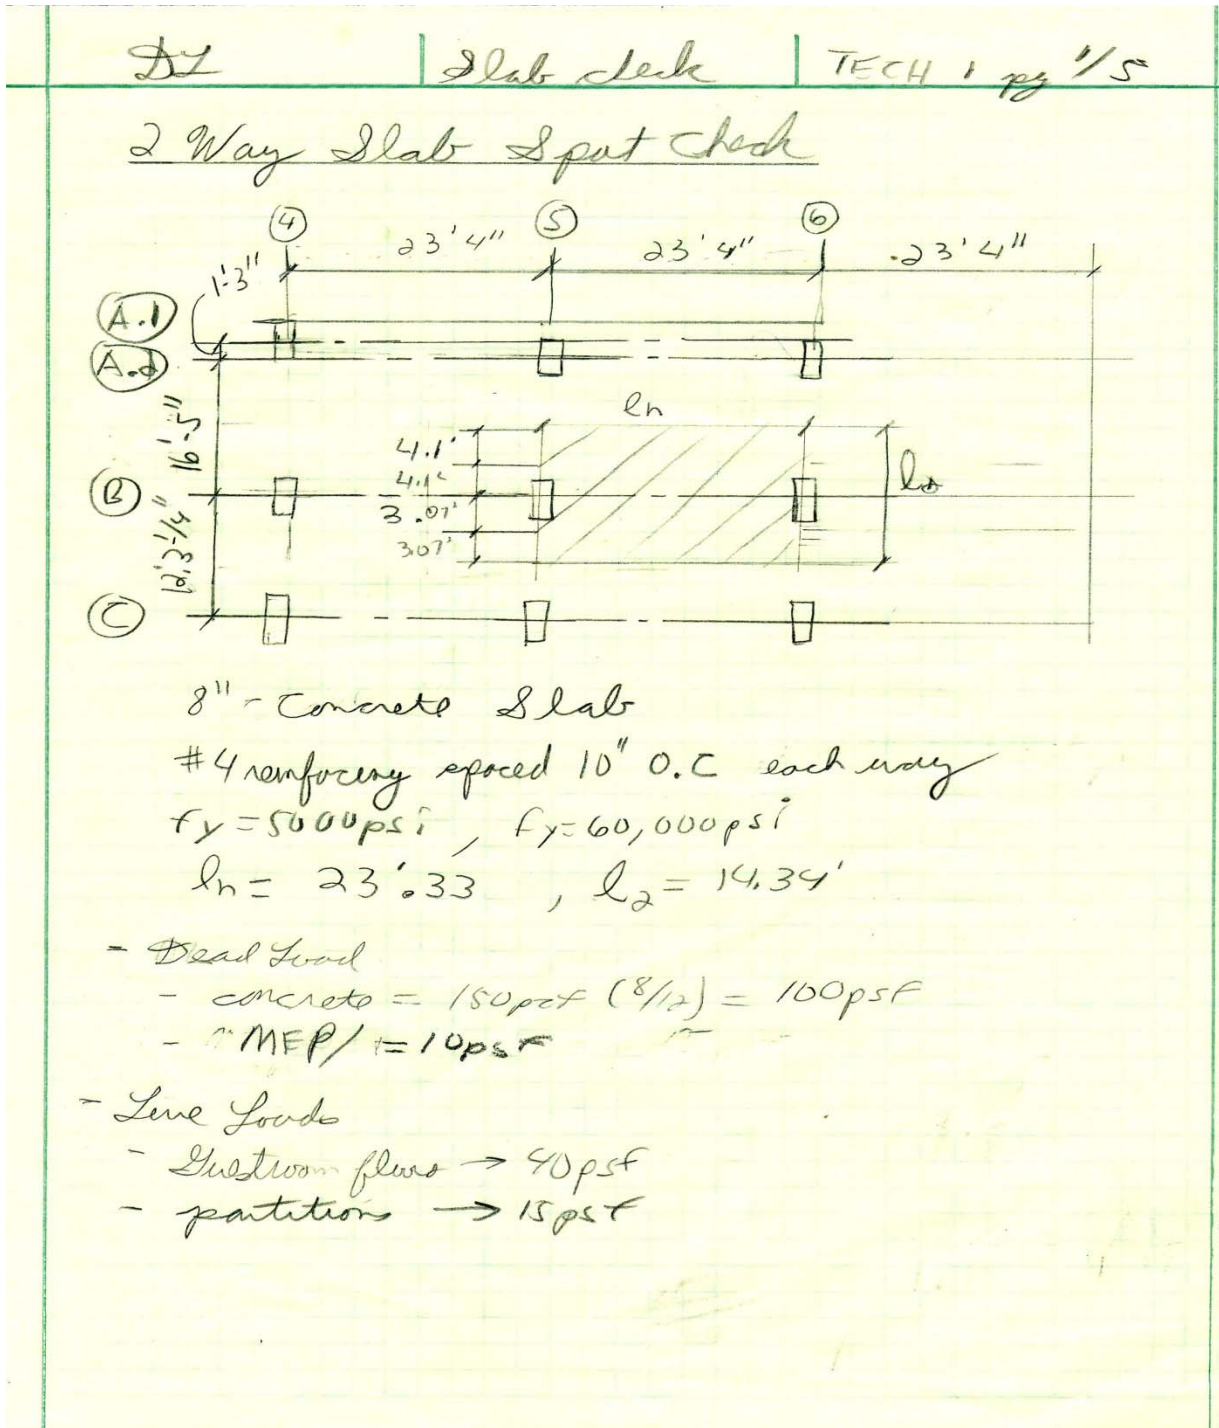 DL Slab check TECH 1 pg 1/5
2 Way Slab Spot Check
4 5 6
23'4" 23'4" 23'4"
1'-3"
A.1
A.2
ln
16'-5"
4.1'
4.1'
B
l2
3.07'
3.07'
12'-3 1/4"
C
8" - Concrete Slab
#4 reinforcing spaced 10" O.C each way
fy = 5000psi, fy = 60,000psi
ln = 23'.33, l2 = 14.34'
- Dead Load
- concrete = 150pcf (8/12) = 100psf
- MEP/ = 10psf
- Live Loads
- Guestroom floors → 40psf
- partitions → 15psf